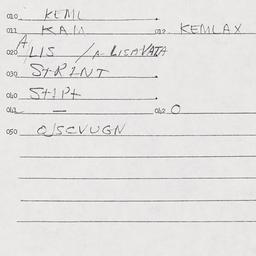 010 KEML
011 KAM 012 KEMLAX
020 A/LIS / A LISAVATA
030 StRINT
040 StIPt
041 — 042 O
050 O/SCVUGN